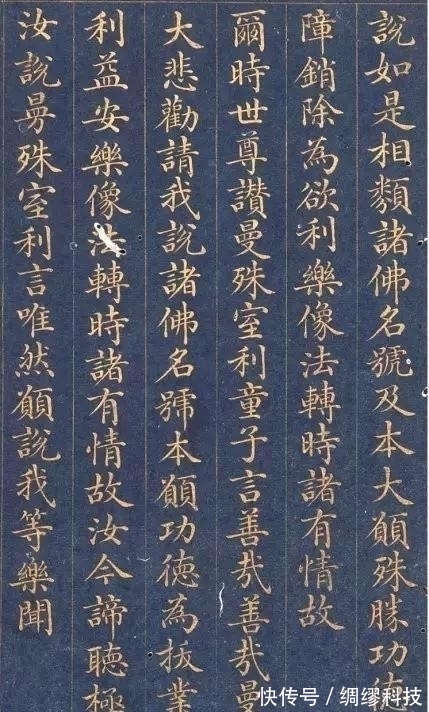 說如是相類諸佛名號及本大願殊勝功德
障銷除為欲利樂像法轉時諸有情故
爾時世尊讚曼殊室利童子言善哉善哉曼
大悲勸請我說諸佛名號本願功德為拔業
利益安樂像法轉時諸有情故汝今諦聽極
汝說曼殊室利言唯然願說我等樂聞
快传号 / 绸缪科技